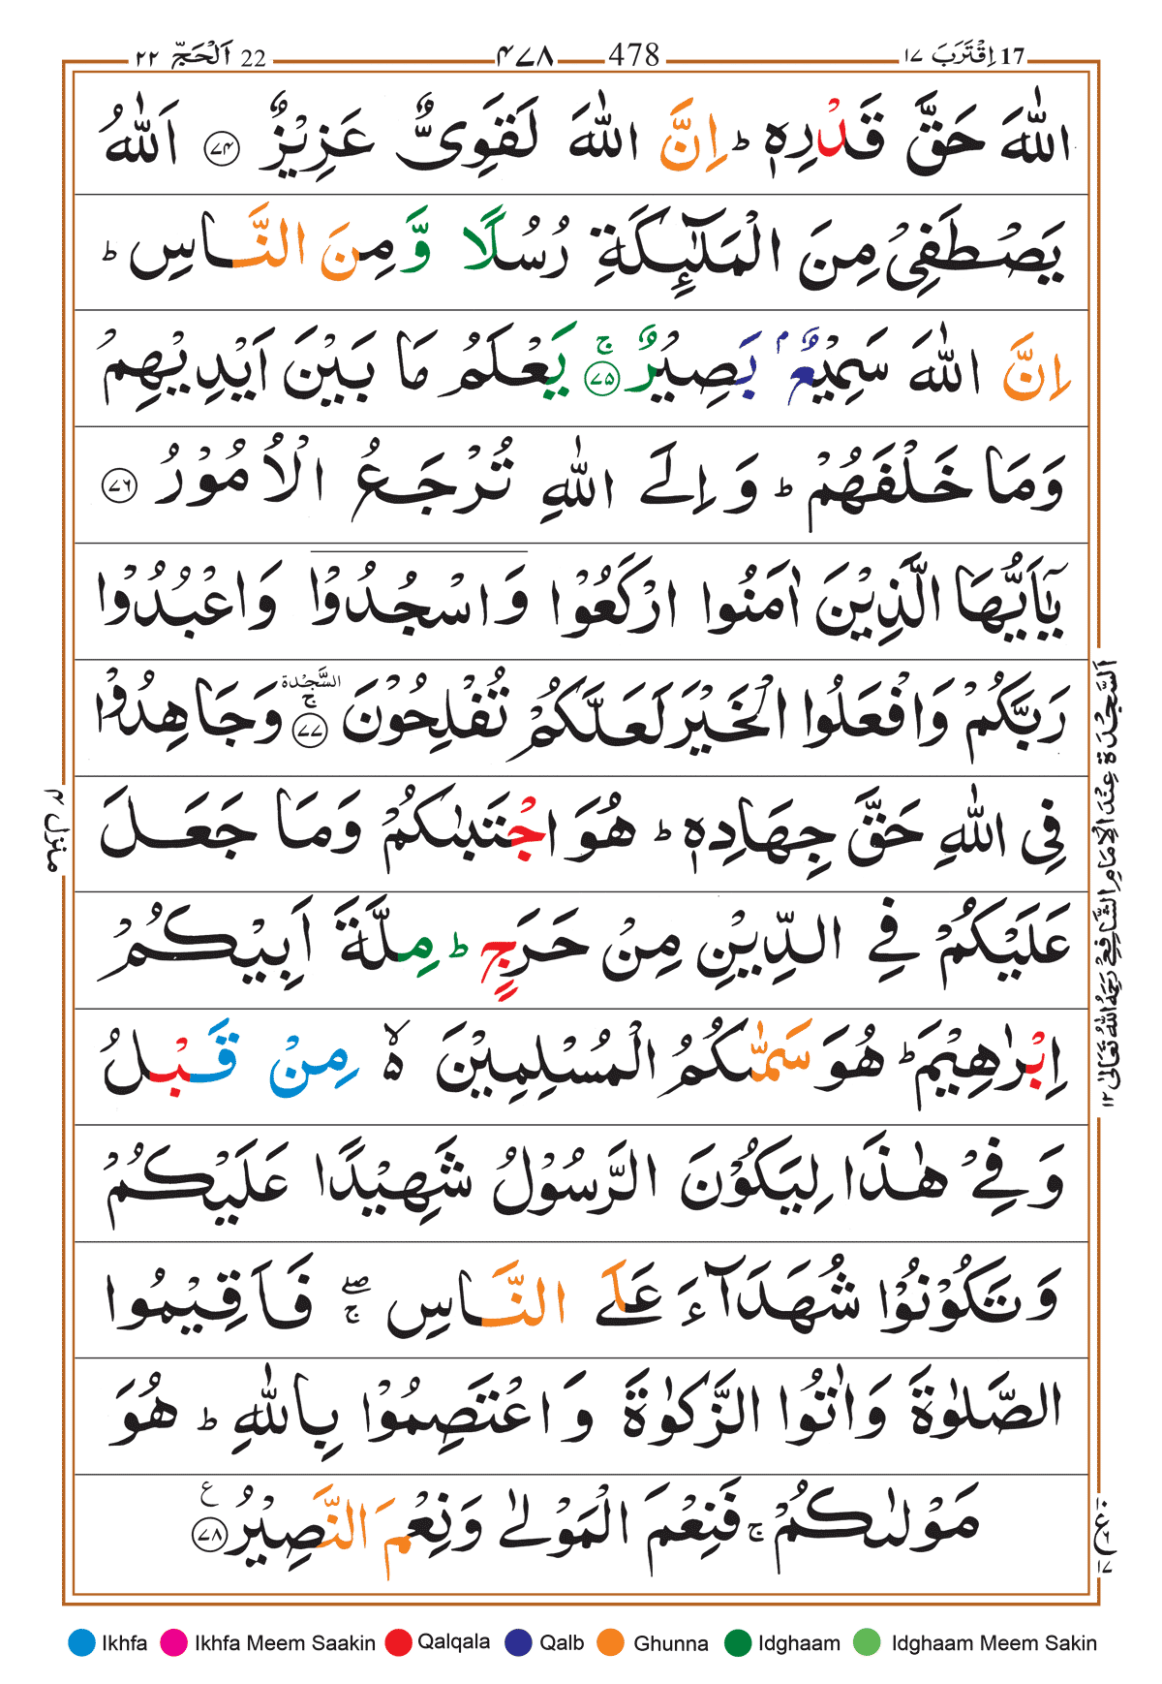 17 اِقْتَرَبَ ١٧
478 ٤٧٨
22 اَلْحَجّ ٢٢
اللّٰهَ حَقَّ قَدْرِهٖ ؕ اِنَّ اللّٰهَ لَقَوِىٌّ عَزِيْزٌ ﴿۷۴﴾ اَللّٰهُ
يَصْطَفِىْ مِنَ الْمَلٰٓئِكَةِ رُسُلًا وَّمِنَ النَّاسِ ؕ
اِنَّ اللّٰهَ سَمِيْعٌۢ بَصِيْرٌ ۚ﴿۷۵﴾ يَعْلَمُ مَا بَيْنَ اَيْدِيْهِمْ
وَمَا خَلْفَهُمْ ؕ وَاِلَى اللّٰهِ تُرْجَعُ الْاُمُوْرُ ﴿۷۶﴾
يٰۤاَيُّهَا الَّذِيْنَ اٰمَنُوا ارْكَعُوْا وَاسْجُدُوْا وَاعْبُدُوْا
رَبَّكُمْ وَافْعَلُوا الْخَيْرَ لَعَلَّكُمْ تُفْلِحُوْنَ ۚ السَّجْدَة ﴿۷۷﴾ وَجَاهِدُوْا
فِى اللّٰهِ حَقَّ جِهَادِهٖ ؕ هُوَ اجْتَبٰىكُمْ وَمَا جَعَلَ
عَلَيْكُمْ فِى الدِّيْنِ مِنْ حَرَجٍ ؕ مِلَّةَ اَبِيْكُمْ
اِبْرٰهِيْمَ ؕ هُوَ سَمّٰىكُمُ الْمُسْلِمِيْنَ ۙ۬ مِنْ قَبْلُ
وَفِىْ هٰذَا لِيَكُوْنَ الرَّسُوْلُ شَهِيْدًا عَلَيْكُمْ
وَتَكُوْنُوْا شُهَدَآءَ عَلَى النَّاسِ ۖۚ فَاَقِيْمُوا
الصَّلٰوةَ وَاٰتُوا الزَّكٰوةَ وَاعْتَصِمُوْا بِاللّٰهِ ؕ هُوَ
مَوْلٰىكُمْ ۚ فَنِعْمَ الْمَوْلٰى وَنِعْمَ النَّصِيْرُ ﴿۷۸﴾ ع
اَلسَّجْدَة عِنْدَ الْاِمَامِ الشَّافِعِىْ رَحِمَهُ اللّٰهُ تَعَالٰى ١٢
منزل ۴
Ikhfa Ikhfa Meem Saakin Qalqala Qalb Ghunna Idghaam Idghaam Meem Sakin